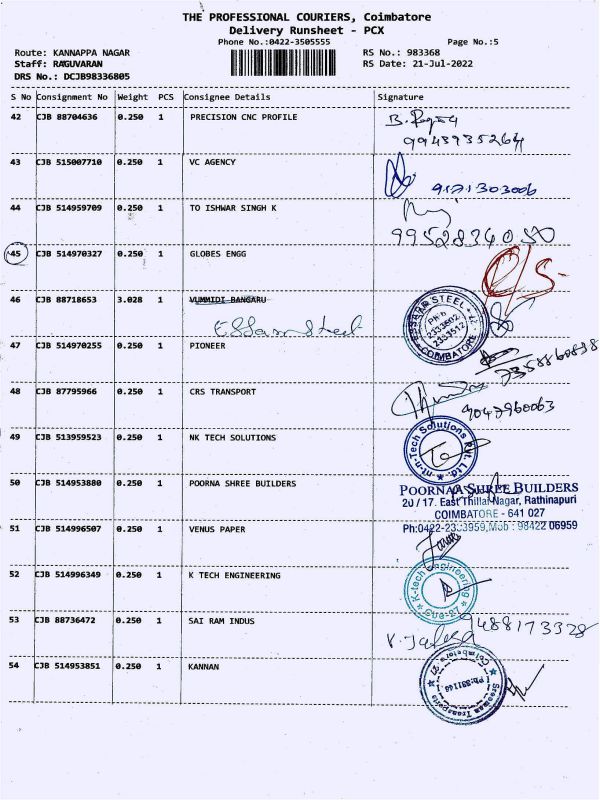 THE PROFESSIONAL COURIERS, Coimbatore
Delivery Runsheet - PCX
Phone No.:0422-3505555
Page No.:5
Route: KANNAPPA NAGAR
RS No.: 983368
Staff: RAGUVARAN
RS Date: 21-Jul-2022
DRS No.: DCJB98336805
S No Consignment No Weight PCS Consignee Details Signature
42 CJB 88704636 0.250 1 PRECISION CNC PROFILE
9943935264
43 CJB 515007710 0.250 1 VC AGENCY
9171303006
44 CJB 514959709 0.250 1 TO ISHWAR SINGH K
9952834050
45 CJB 514970327 0.250 1 GLOBES ENGG
O/S-
46 CJB 88718653 3.028 1 VUMMIDI BANGARU
Essam Steel
ESSAM STEEL
PH:
2333602
2333512
COIMBATORE
47 CJB 514970255 0.250 1 PIONEER
7358860838
48 CJB 87795966 0.250 1 CRS TRANSPORT
9047960063
49 CJB 513959523 0.250 1 NK TECH SOLUTIONS
nt-n-Tech Solutions Pvt. Ltd.
50 CJB 514953880 0.250 1 POORNA SHREE BUILDERS
POORNAA SHREE BUILDERS
20 / 17. East Thillai Nagar, Rathinapuri
COIMBATORE - 641 027
Ph:0422-2333959,Mob : 98422 06959
51 CJB 514996507 0.250 1 VENUS PAPER
52 CJB 514996349 0.250 1 K TECH ENGINEERING
K-tech Engineering
CBE-27
53 CJB 88736472 0.250 1 SAI RAM INDUS
9488173328
54 CJB 514953851 0.250 1 KANNAN
Coimbatore
Transports